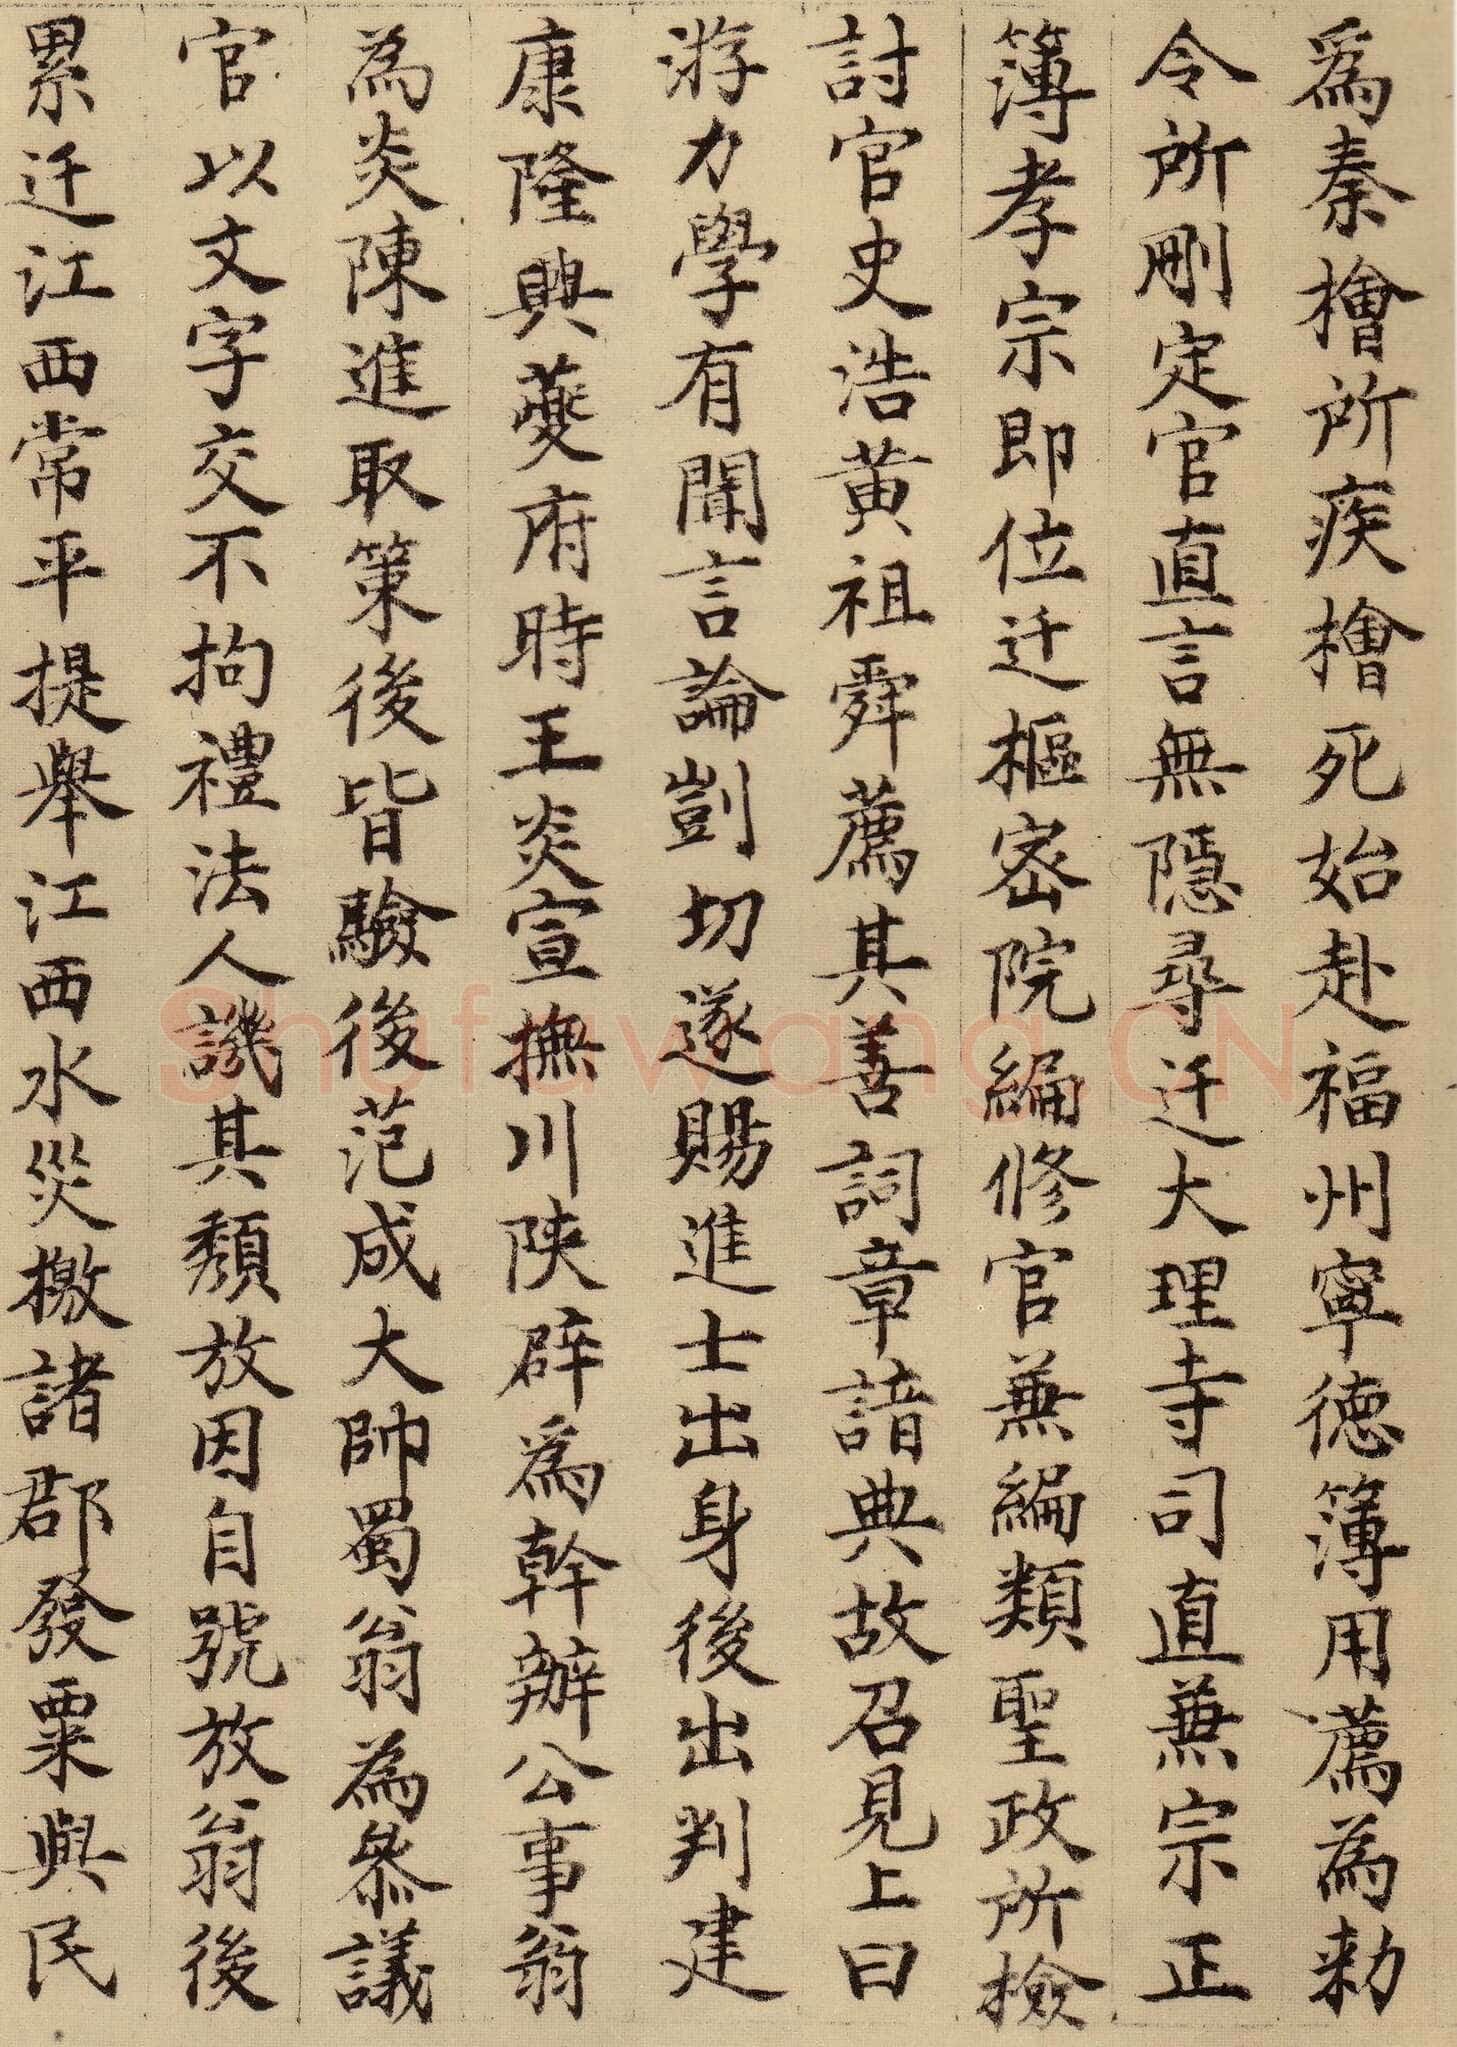 爲秦檜所疾檜死始赴福州寧德簿用薦為勑
令所刪定官直言無隱尋迁大理寺司直兼宗正
簿孝宗即位迁樞密院編修官兼編類聖政所檢
討官史浩黄祖舜薦其善詞章諳典故召見上曰
游力學有聞言論剴切遂賜進士出身後出判建
康隆興夔府時王炎宣撫川陝辟爲幹辦公事翁
為炎陳進取策後皆驗後范成大帥蜀翁為叅議
官以文字交不拘禮法人譏其頹放因自號放翁後
累迁江西常平提舉江西水災檄諸郡發粟與民
Shufawang.CN